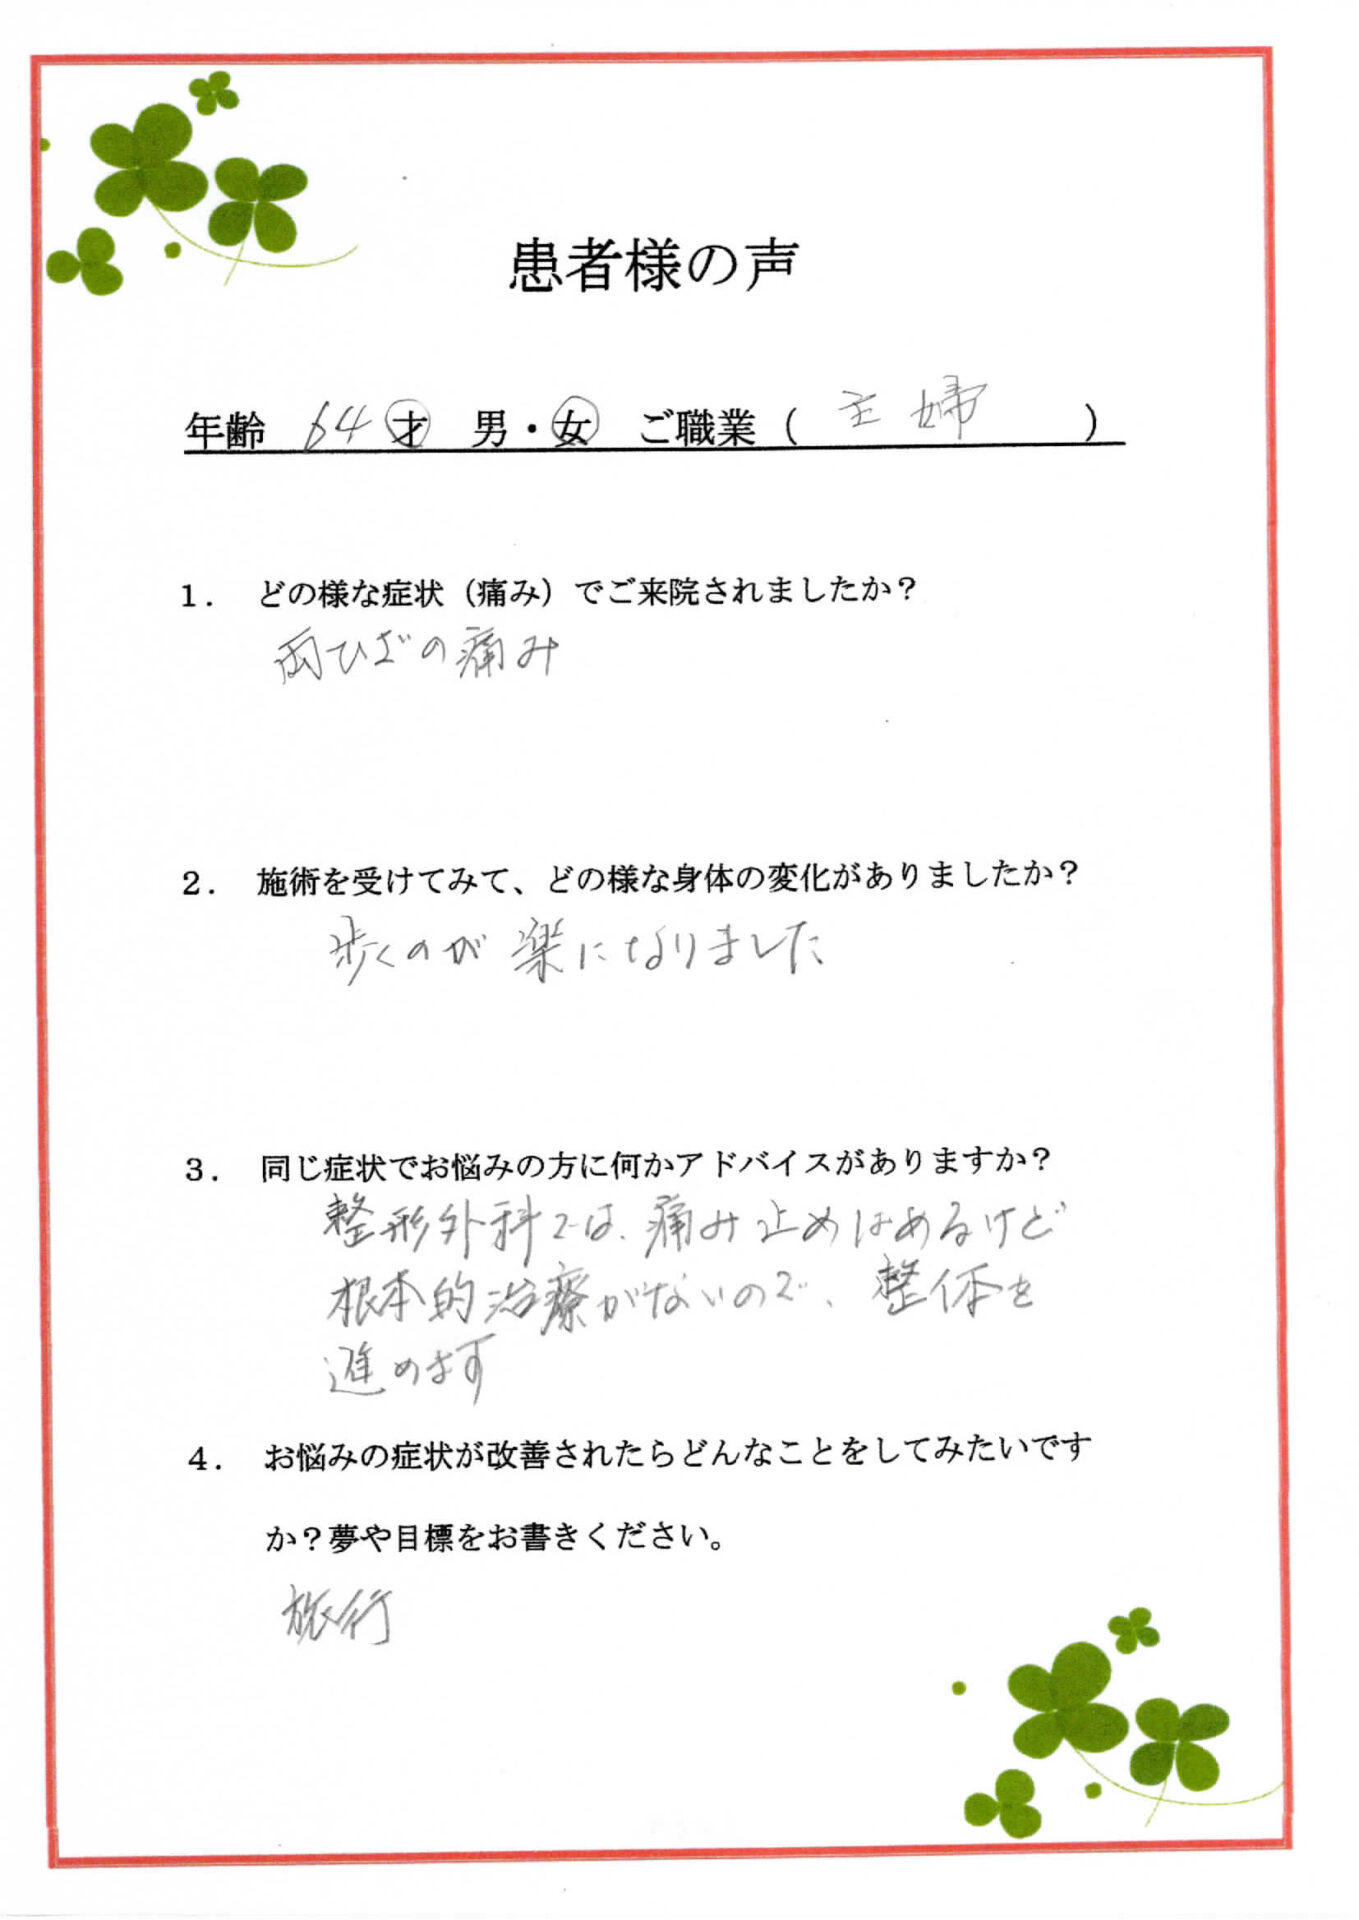 患者様の声
年齢 64才 男・女 ご職業（ 主婦 ）
1. どの様な症状（痛み）でご来院されましたか？
両ひざの痛み
2. 施術を受けてみて、どの様な身体の変化がありましたか？
歩くのが楽になりました
3. 同じ症状でお悩みの方に何かアドバイスがありますか？
整形外科では、痛み止めはあるけど
根本的治療がないので、整体を
進めます
4. お悩みの症状が改善されたらどんなことをしてみたいです
か？夢や目標をお書きください。
旅行